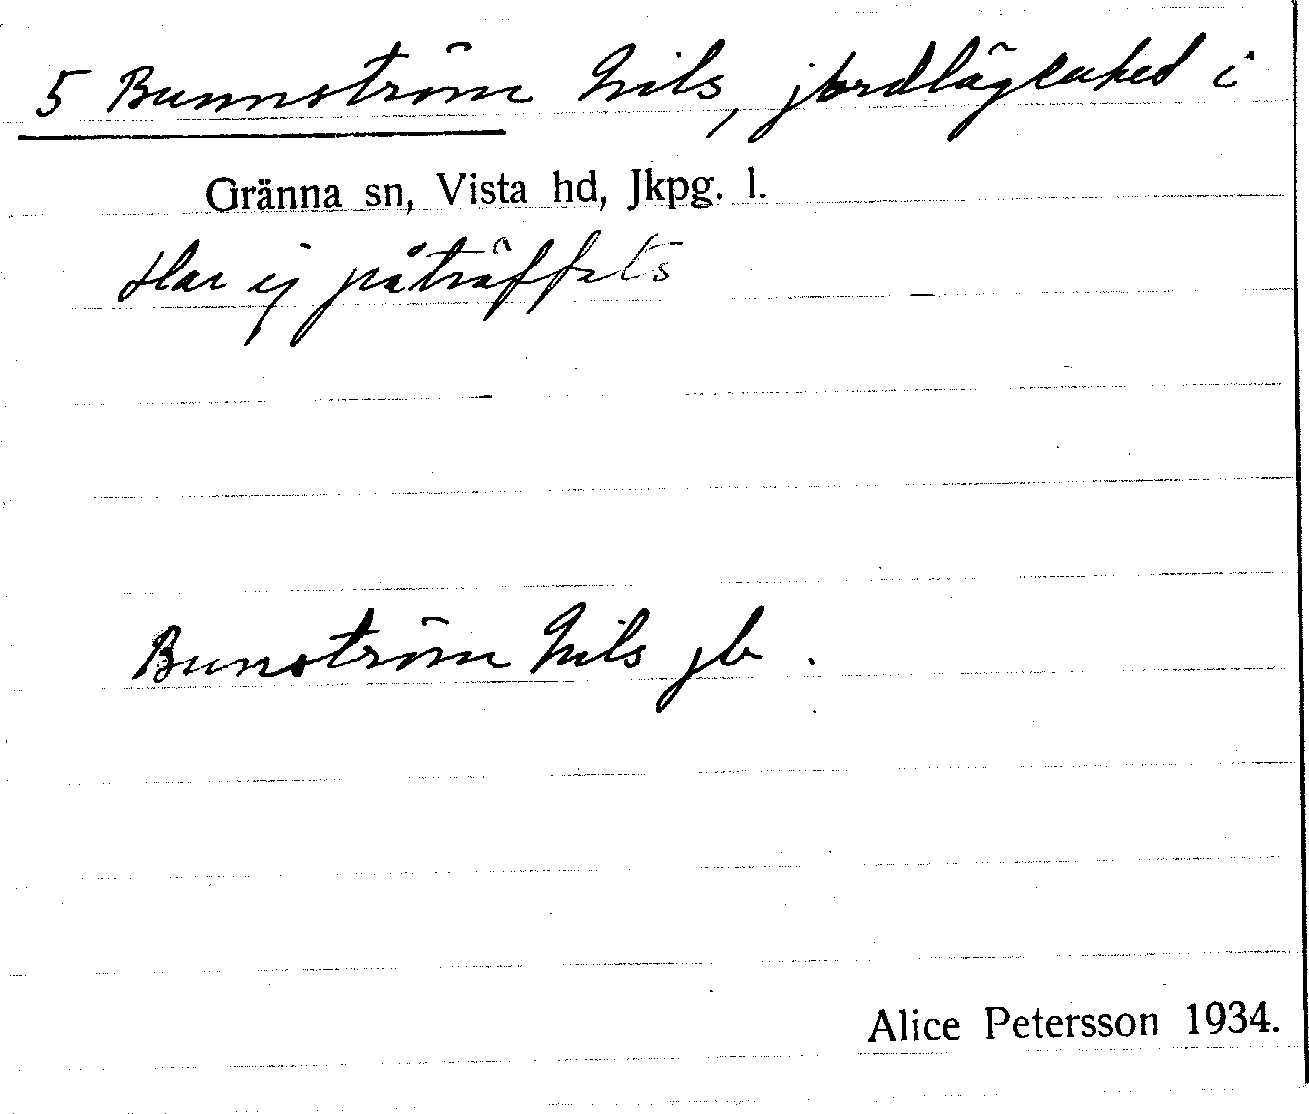 5 Bunnström Nils, jordlägenhed i
Gränna sn, Vista hd, Jkpg. l.
Har ej påträffats
Bunström Nils jb.
Alice Petersson 1934.